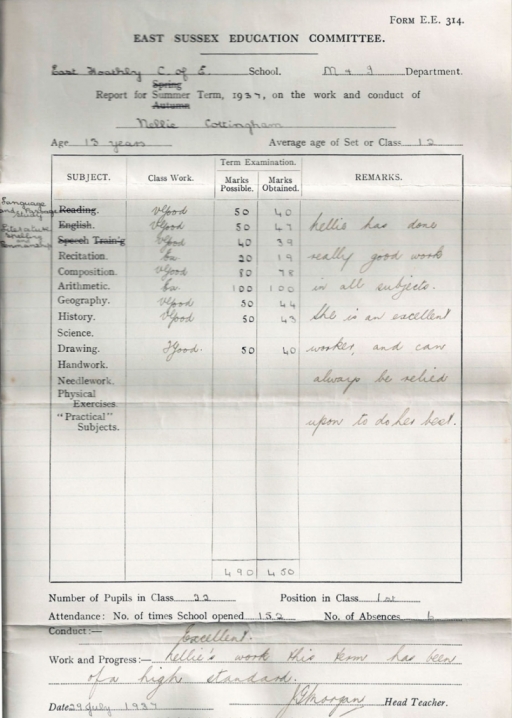 FORM E.E. 314.
EAST SUSSEX EDUCATION COMMITTEE.
East Hoathly C. of E. School. M & I Department.
Spring
Report for Summer Term, 1937, on the work and conduct of
Autumn
Nellie Cottingham
Age 13 years Average age of Set or Class 12
Term Examination.
SUBJECT. Class Work. Marks Possible. Marks Obtained. REMARKS.
Language
Reading. VGood 50 40
Literature
English. VGood 50 47 Nellie has done
Spelling and Penmanship
Speech Train'g VGood 40 39
Recitation. Ex 20 19 really good work
Composition. VGood 80 78
Arithmetic. Ex 100 100 in all subjects.
Geography. VGood 50 44
History. VGood 50 43 She is an excellent
Science.
Drawing. Good. 50 40 worker, and can
Handwork.
Needlework. always be relied
Physical Exercises.
"Practical" Subjects. upon to do her best.
490 450
Number of Pupils in Class 22 Position in Class 1st
Attendance: No. of times School opened 152 No. of Absences 6
Conduct:— Excellent.
Work and Progress:— Nellie's work this term has been
of a high standard.
Date 29 July 1937 Morgan Head Teacher.